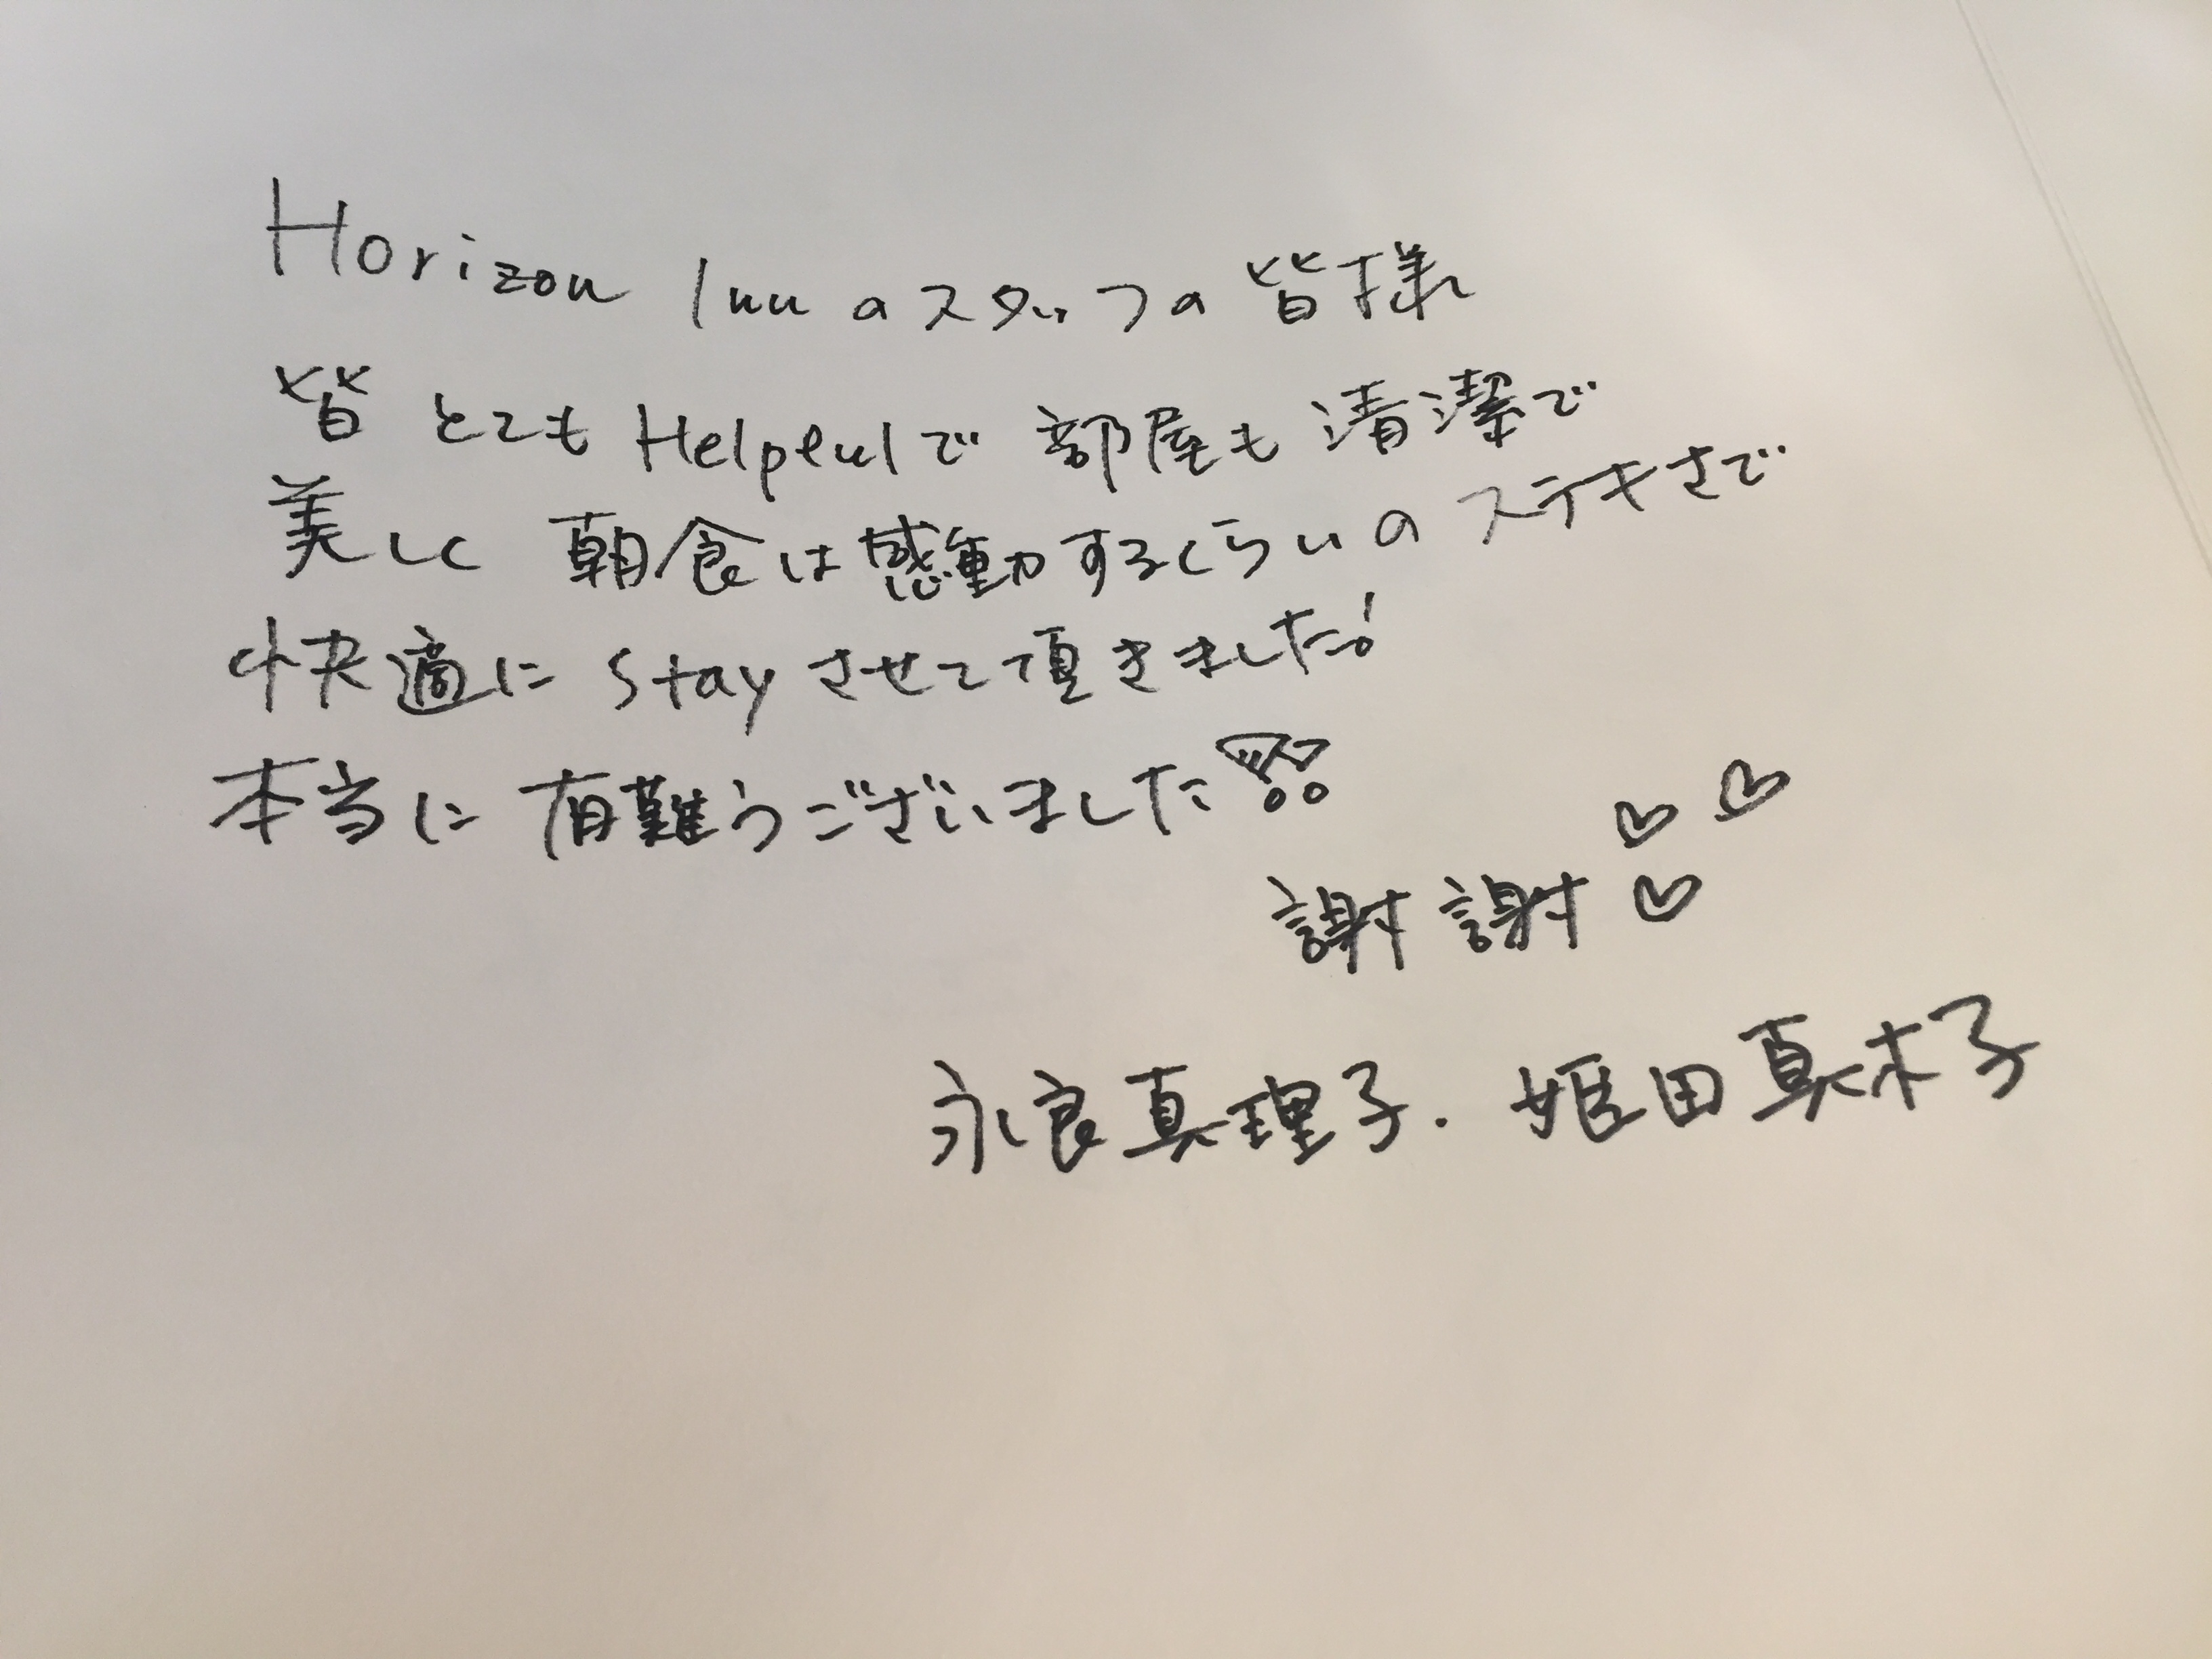 Horizon Innのスタッフの皆様
皆とてもHelpfulで部屋も清潔で
美しく朝食は感動するくらいのステキさで
快適にstayさせて頂きました!
本当に有難うございました!!
謝謝♡♡♡
永良真理子.姫田真木子